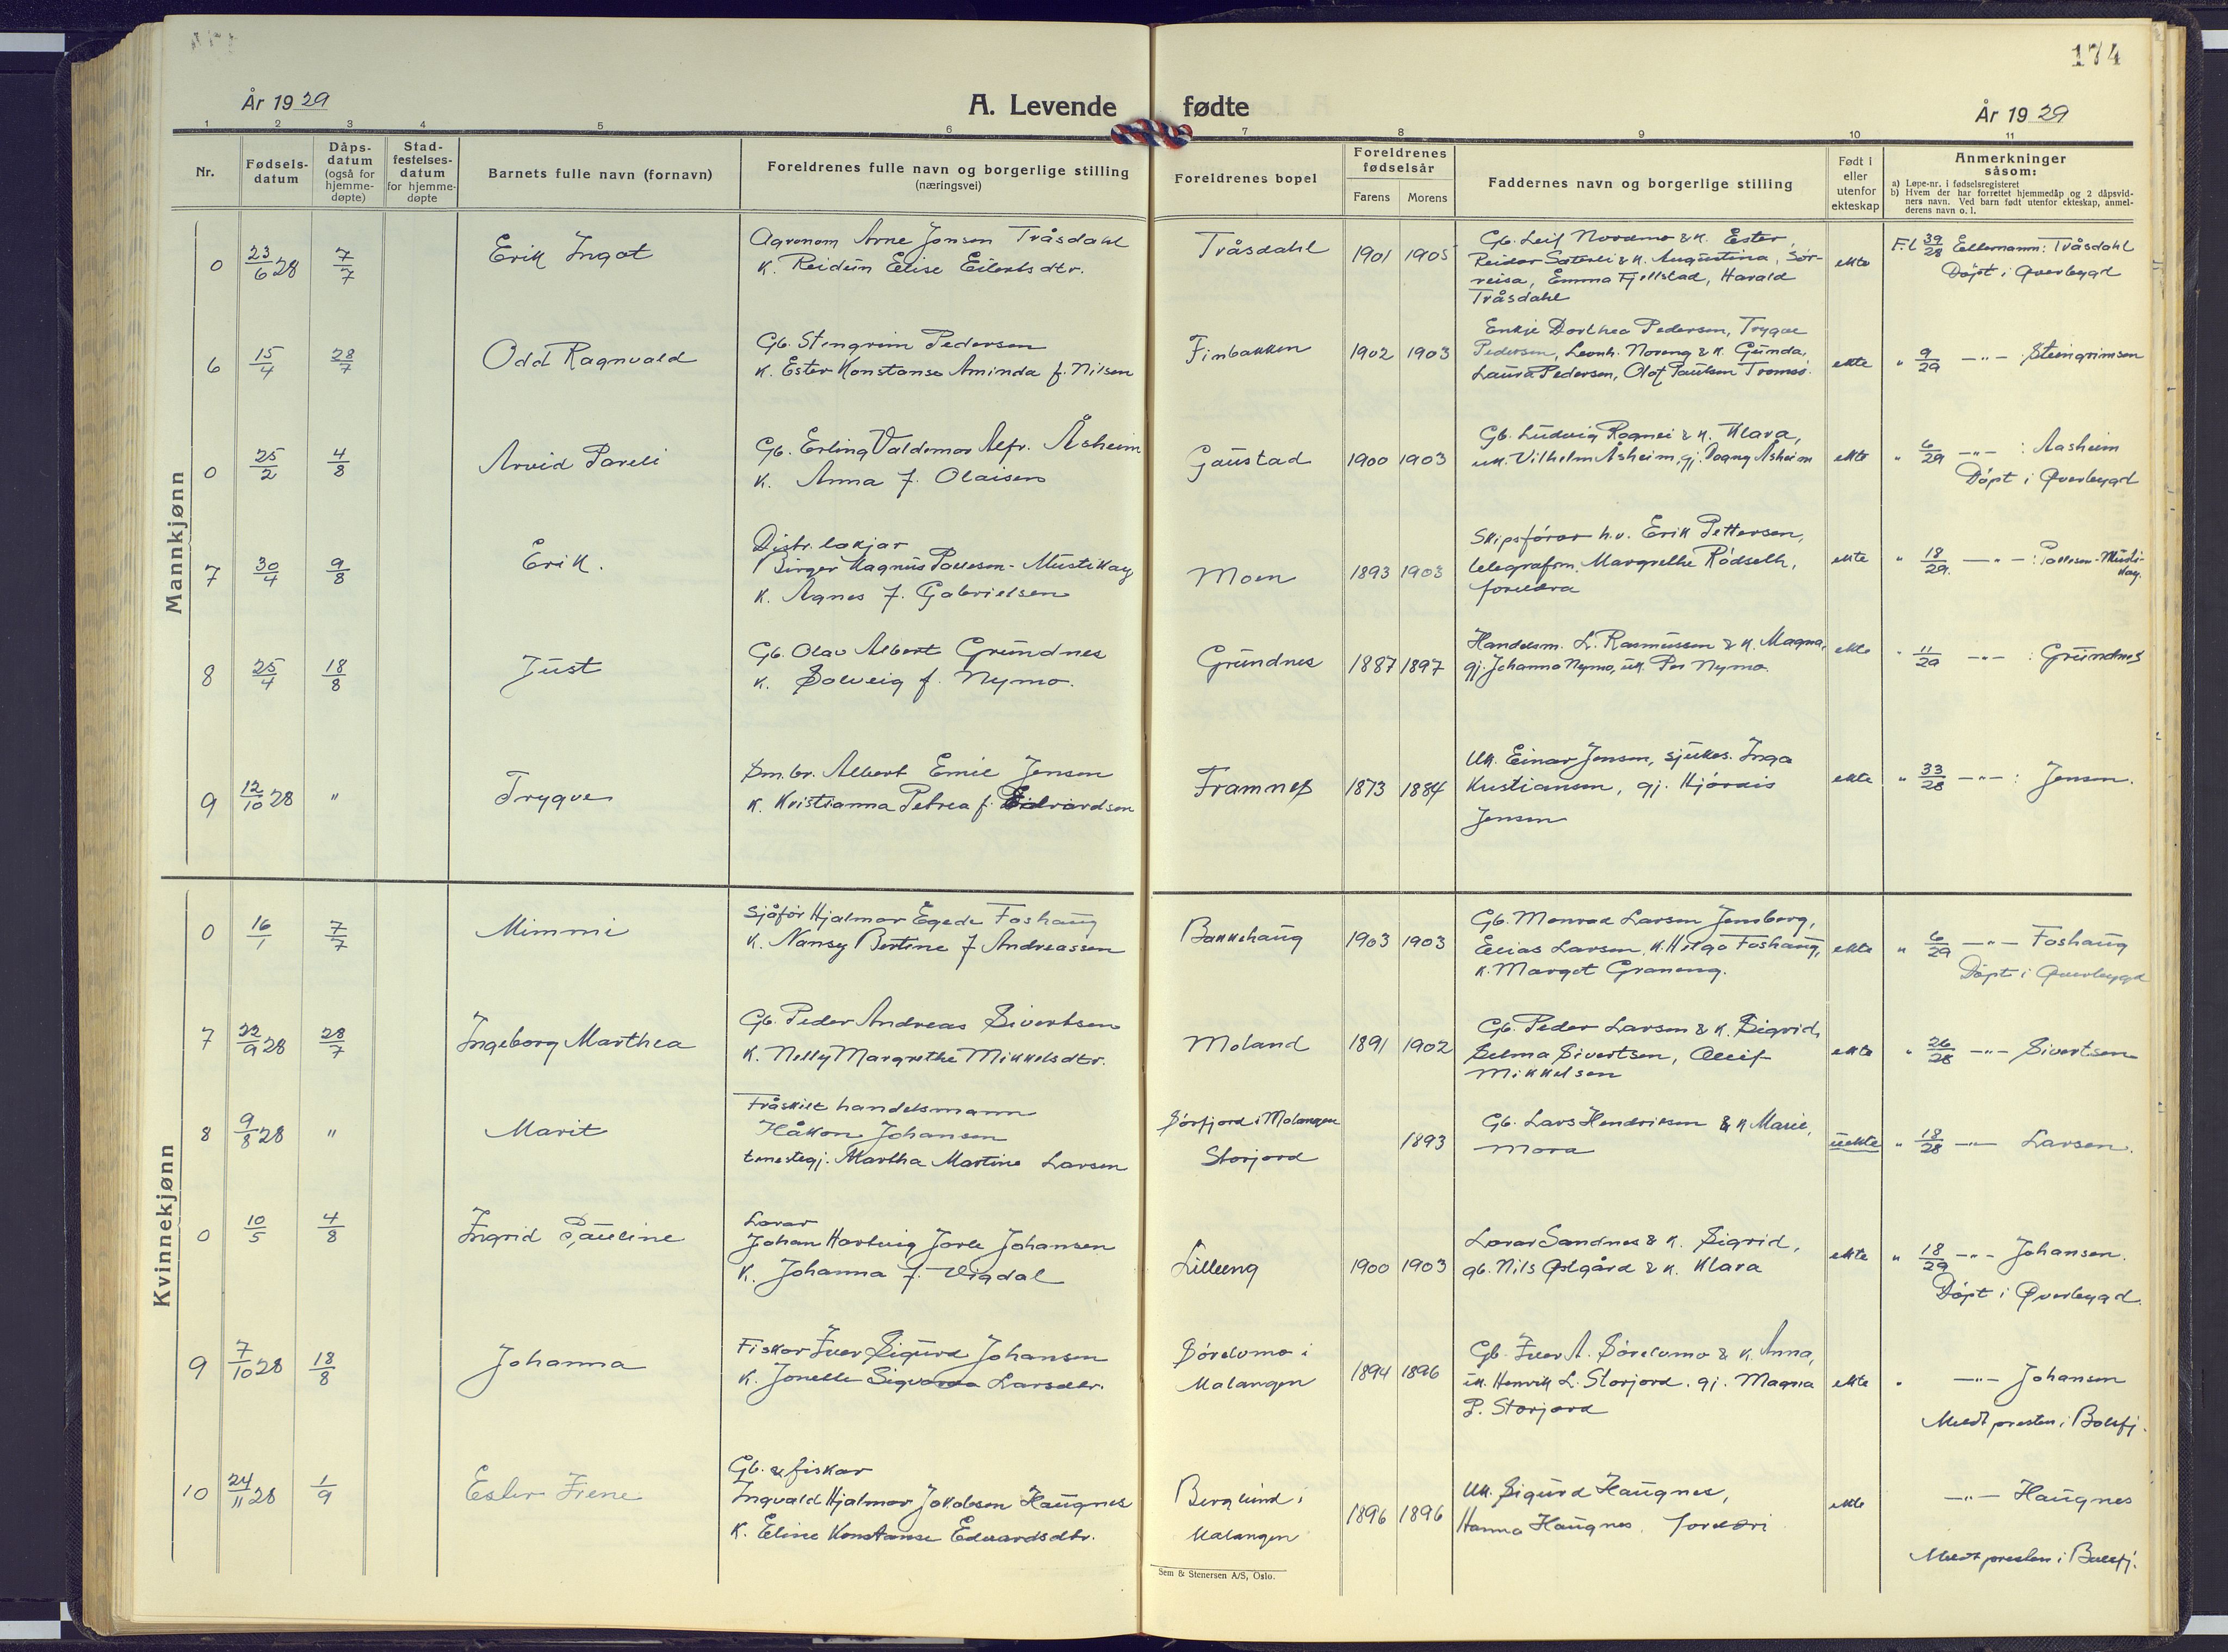 174
År 1929
A. Levende fødte
År 1929
1 2 3 4 5 6 7 8 9 10 11
Nr.
Fødsels-
datum
Dåps-
datum
(også for
hjemme-
døpte)
Stad-
festelses-
datum
for hjemme-
døpte
Barnets fulle navn (fornavn)
Foreldrenes fulle navn og borgerlige stilling
(næringsvei)
Foreldrenes bopel
Foreldrenes
fødselsår
Farens Morens
Faddernes navn og borgerlige stilling
Født i
eller
utenfor
ekteskap
Anmerkninger
såsom:
a) Løpe-nr. i fødselsregisteret
b) Hvem der har forrettet hjemmedåp og 2 dåpsvid-
ners navn. Ved barn født utenfor ekteskap, anmel-
derens navn o. l.
Mannkjønn
0 23/6 28 7/7 Erik Ingot
Agronom Arne Jonson Tråsdahl
K. Reidun Elise Eilertsdtr.
Tråsdahl 1901 1905
Gb. Leif Nordmo & K. Ester,
Reidar Sæterli & K. Augustina, Sør-
reisa, Emma Fjellstad, Harald
Tråsdahl
ekte
F.l. 39/28 Tråsdahl
Døpt i Øverbygd
6 15/4 28/7 Odd Ragnvald
Gb. Stengrim Pedersen
K. Ester Konstanse Aminda f. Nilsen
Finbakken 1902 1903
Enkje Dorthea Pedersen, Trygve
Pedersen, Leonh. Noreng & K. Gunda,
Laura Pedersen, Olaf Paulsen Tromsø.
ekte
" 9/29 -"- Steingrimsen
0 25/2 4/8 Arvid Pareli
Gb. Erling Valdemar Alfr. Åsheim
K. Anna f. Olaisen
Gaustad 1900 1903
Gb. Ludvig Rognei & K. Klara,
uk. Vilhelm Åsheim, gj. Dagny Åsheim
ekte
" 6/29 -"- : Aasheim
Døpt i Øverbygd
7 30/4 9/8 Erik.
Distr. lækjar
Birger Magnus Pallesen-Mustikay
K. Agnes f. Gabrielsen
Moen 1893 1903
Skipsførar h.v. Erik Pettersen,
telegrafm. Margrethe Rödseth,
foreldra
ekte
" 18/29. -"- : Pallesen-Musti-
kay.
8 25/4 18/8 Just
Gb. Olav Albert Grundnes
K. Solveig f. Nymo.
Grundnes 1887 1897
Handelsm. L. Rasmussen & K. Magna,
gj. Johanna Nymo, uk. Per Nymo.
ekte
" 11/29 -"- : Grundnes
9 12/10 28 " Trygve
Sm.br. Albert Emil Jensen
K. Kristianna Petrea f. Edvardsen
Framnes 1873 1884
Uk. Einar Jensen, sjukes. Inga
Kristiansen, gj. Hjördis
Jensen
ekte
" 33/28 -"- : Jensen.
Kvinnekjønn
0 16/1 7/7 Mimmi
Sjåfør Hjalmar Egede Foshaug
K. Nansy Bertine f Andreassen
Bakkehaug 1903 1903
Gb. Monrad Larsen Jensberg,
Elias Larsen, K. Helga Foshaug,
K. Margot Graneng.
ekte
" 6/29 -"- Foshaug
Døpt i Øverbygd
7 22/9 28 28/7 Ingeborg Marthea
Gb. Peder Andreas Sivertsen
K. Nelly Margrethe Mikkelsdtr.
Moland 1891 1902
Gb. Peder Larsen & K. Sigrid,
Selma Sivertsen,
Mikkelsen
ekte
" 26/28 -"- Sivertsen
8 9/8 28 " Marit
Fråskilt handelsmann
Håkon Johansen
tenestegj. Martha Martine Larsen
Sørfjord i Malangen
Storjord
1893
Gb. Lars Hendriksen & K Marie,
Mora
uekte
" 18/28 -"- Larsen.
0 10/5 4/8 Ingrid Pauline
Lærar
Johan Hartvig Jarle Johansen
K. Johanna f. Vigdal
Lilleeng 1900 1903
Lærar Sandnes & K. Sigrid,
gb. Nils Østgård & K. Klara
ekte
" 18/29 -"- Johansen.
Døpt i Øverbygd.
9 7/10 28 18/8 Johanna
Fiskar Iver Sigurd Johansen
K. Jonette Sigvarda Larsdtr.
Sørelvmo i
Malangen
1894 1896
Gb. Iver A. Sørelvmo & K. Anna,
uk. Henrik L. Storjord. gj. Magna
P. Storjord
ekte
" -"- Johansen
Meldt presten i Balsfj.
10 24/11 28 1/9 Ester Irene
Gb. & fiskar
Ingvald Hjalmar Jakobsen Haugnes
K. Eline Konstanse Edvardsdtr.
Berglund i
Malangen
1896 1896
Uk. Sigurd Haugnes,
Hanna Haugnes. foreldri
ekte
-"- Haugnes
Meldt presten i Balsfj.
Sem & Stenersen A/S, Oslo.